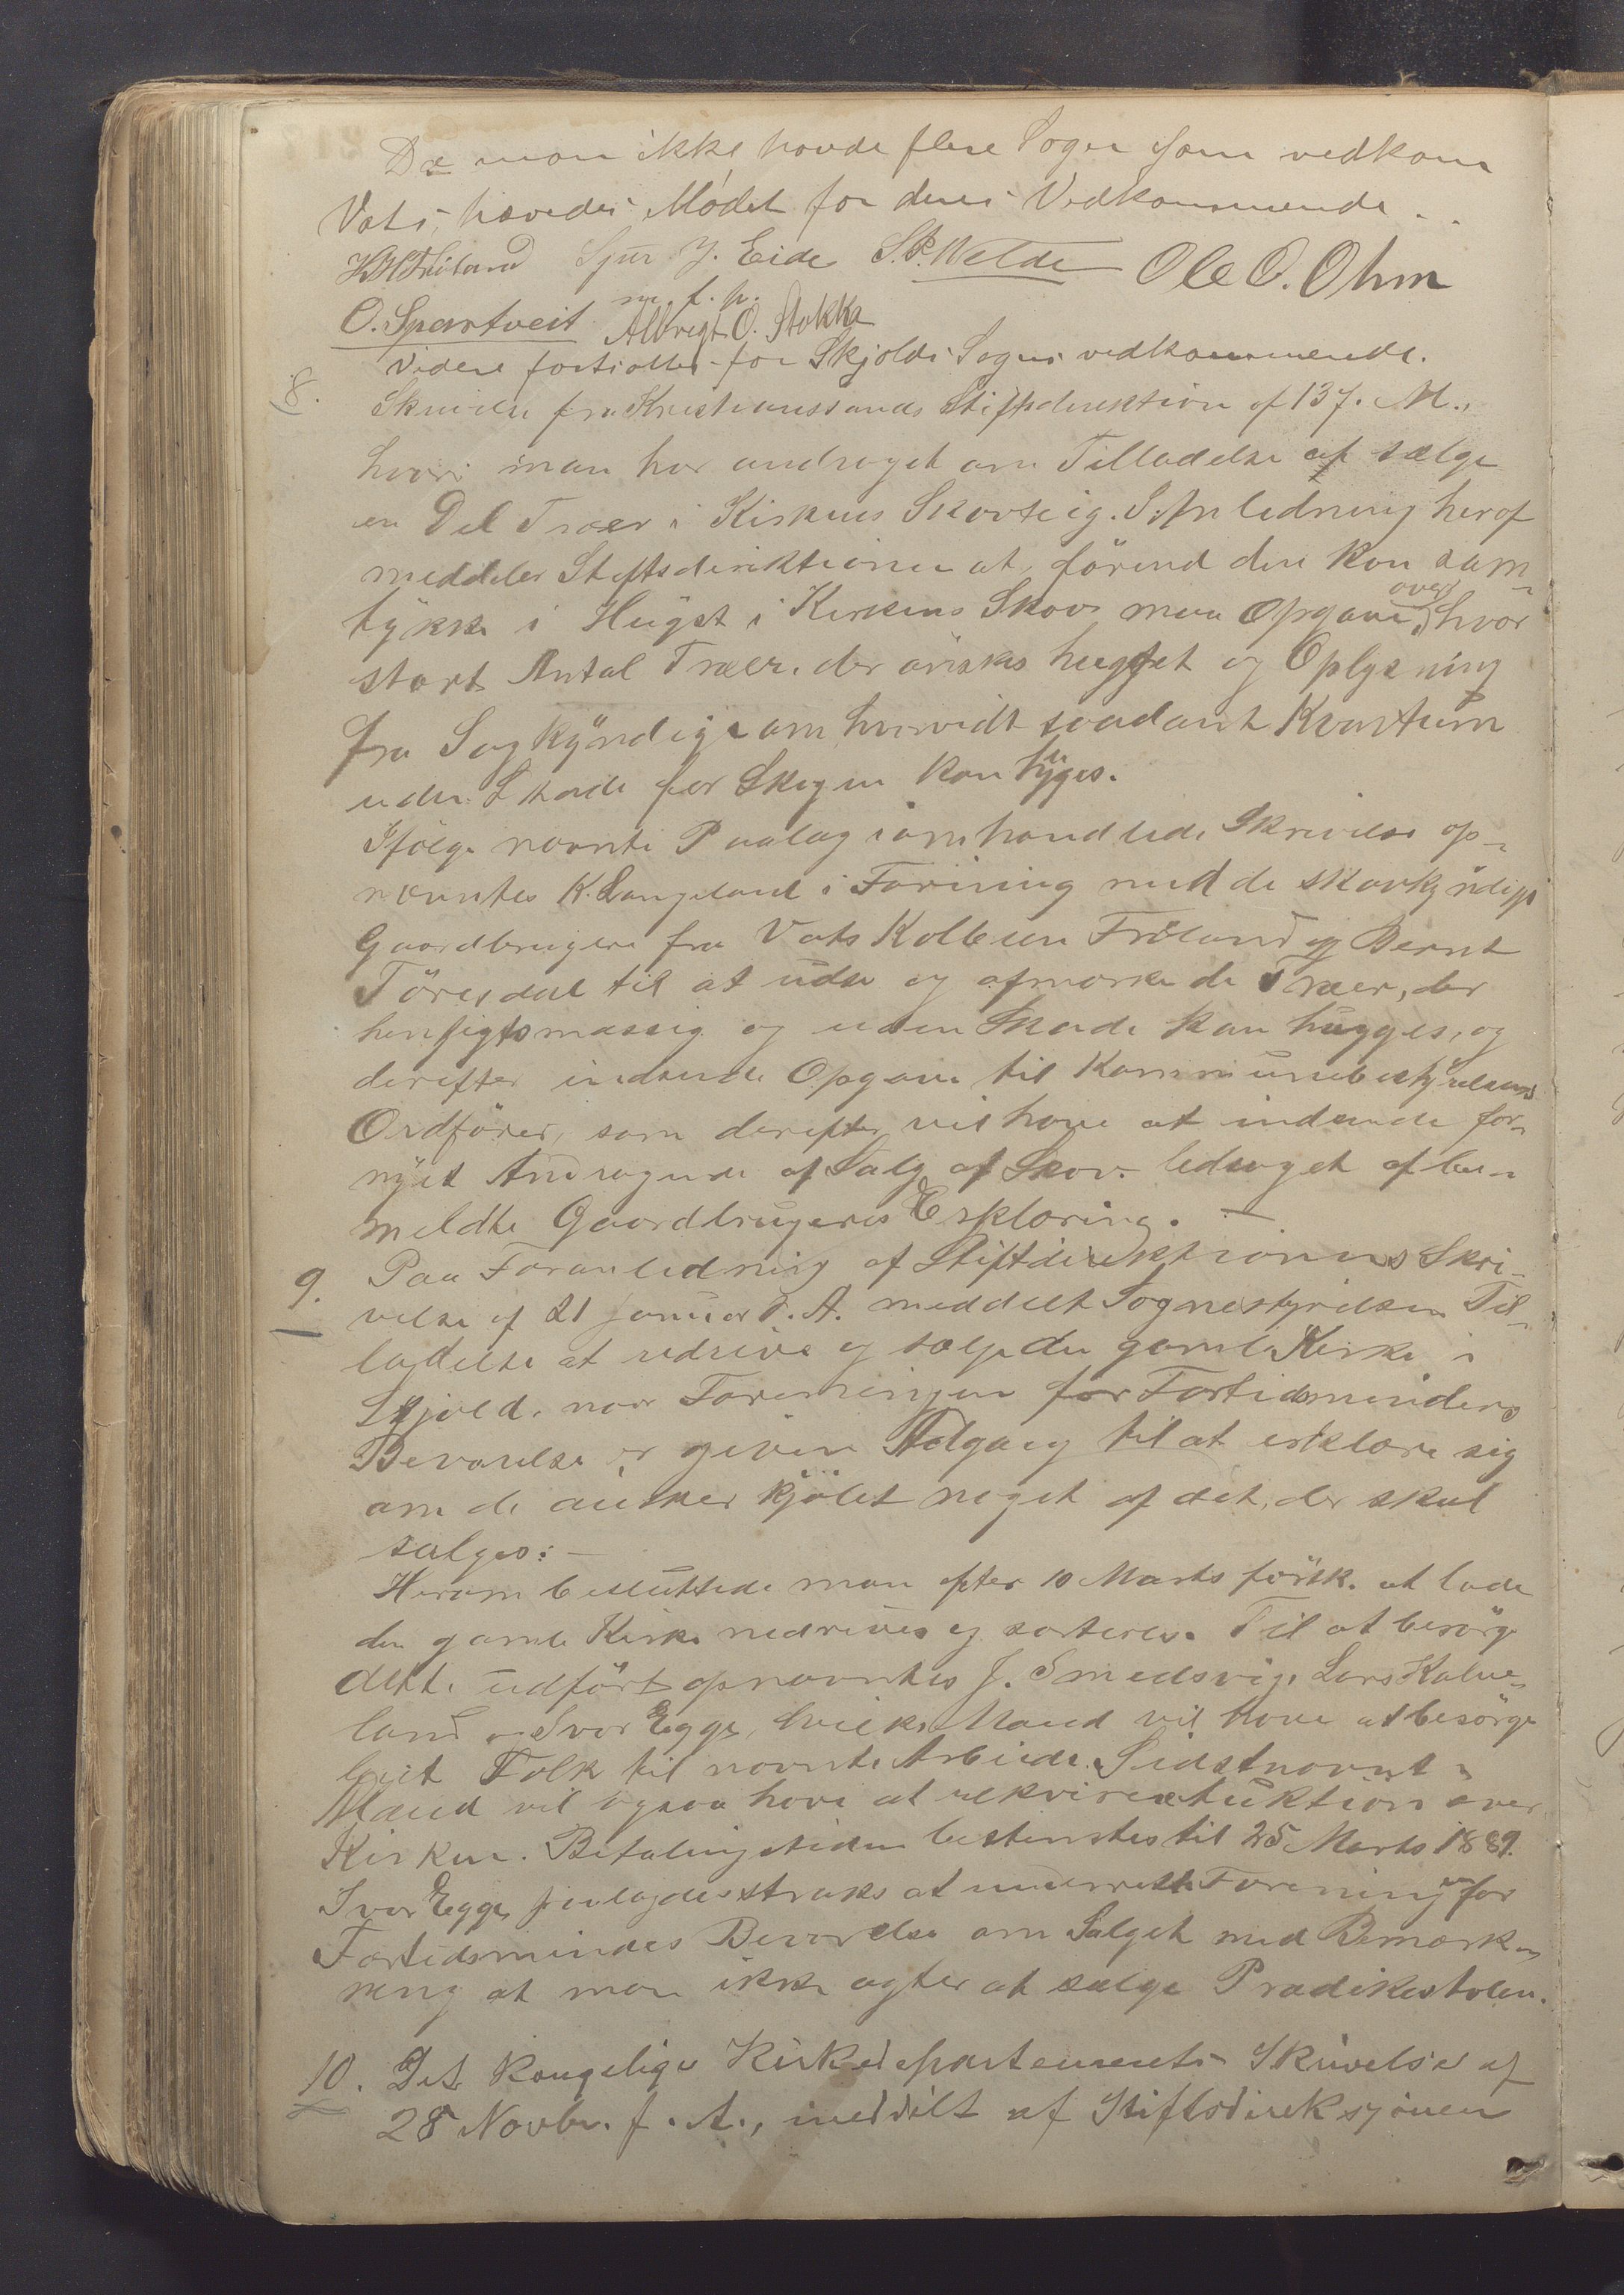 Da man ikke havde flere Sager som vedkom
Vats, hævedes Mödet for deres Vedkommende.
H H Fröland Sjur J. Eide S.P. Welde Ole O. Ohm
m. f. p.
O. Spartveit Albregt O. Stokka
Videre fortsattes for Skjolds Sogns vedkommende.
8. Skrivelse fra Kristianssands Stiftsdirektion af 13 f. M.,
hvori man har andraget om Tilladelse at sælge
en Del Træer i Kirkens Skovteig. I Anledning heraf
meddeler Stiftsdirektionen at, förend den kan sam-
tykke i Hugst i Kirkens Skov, maa Opgave over hvor
stort Antal Træer, der önskes hugget og Oplysning
fra Sagkyndige om hvorvidt saadant Kvantum
uden Skade for Skogen kan hugges.
Ifölge nævnte Paalæg i omhandlede Skrivelse op-
nævntes K. Langeland i Forening med de skovkyndige
Gaardbrugere fra Vats Kolbein Fröland og Bernt
Töresdal til at udse og afmærke de Træer, der
hensigtsmæssig og uden Skade kan hugges, og
derefter indsende Opgave til Kommunebestyrelsens
Ordförer, som derefter vil have at indsende for-
nyet Andragende af Salg af Skov ledsaget af be-
meldte Gaardbrugeres Erklæring. —
9. Paa Foranledning af Stiftdirektionens Skri-
velse af 21 Januar d. A. meddelt Sognestyrelsen Til-
ladelse at nedrive og sælge den gamle Kirke i
Skjold, naar Foreningen for Fortidsminders
Bevarelse er given Adgang til at erklære sig
om de önsker kjöbt noget af det, der skal
sælges: —
Herom besluttede man efter 10 Marts förstk. at lade
den gamle Kirke nedrives og sorteres. Til at besörge
dette udfört opnævntes J. Smedsvig, Lars Kalve-
land og Ivar Egge, hvilke Mænd vil have at besörge
leiet Folk til nævnte Arbeide. Sidstnævnte
Mand vil ogsaa have at rekvirere Auktion over
Kirken. Betalingstiden bestemtes til 25 Marts 1889.
Ivar Egge paalagdes straks at underrette Foreningen for
Fortidsmindes Bevarelse om Salget med Bemærk-
ning at man ikke agter at sælge Prædikestolen.
10. Det kongelige Kirkedepartements Skrivelse af
28 Novbr. f. A., meddelt af Stiftsdireksjonen